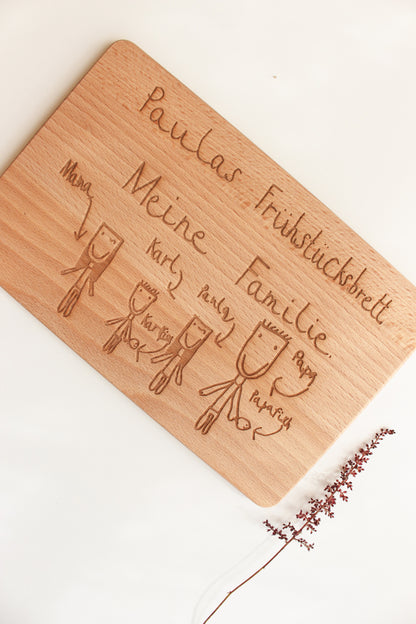 Paulas Frühstücksbrett
Meine Familie.
Mama
Karl
Paula
Papa